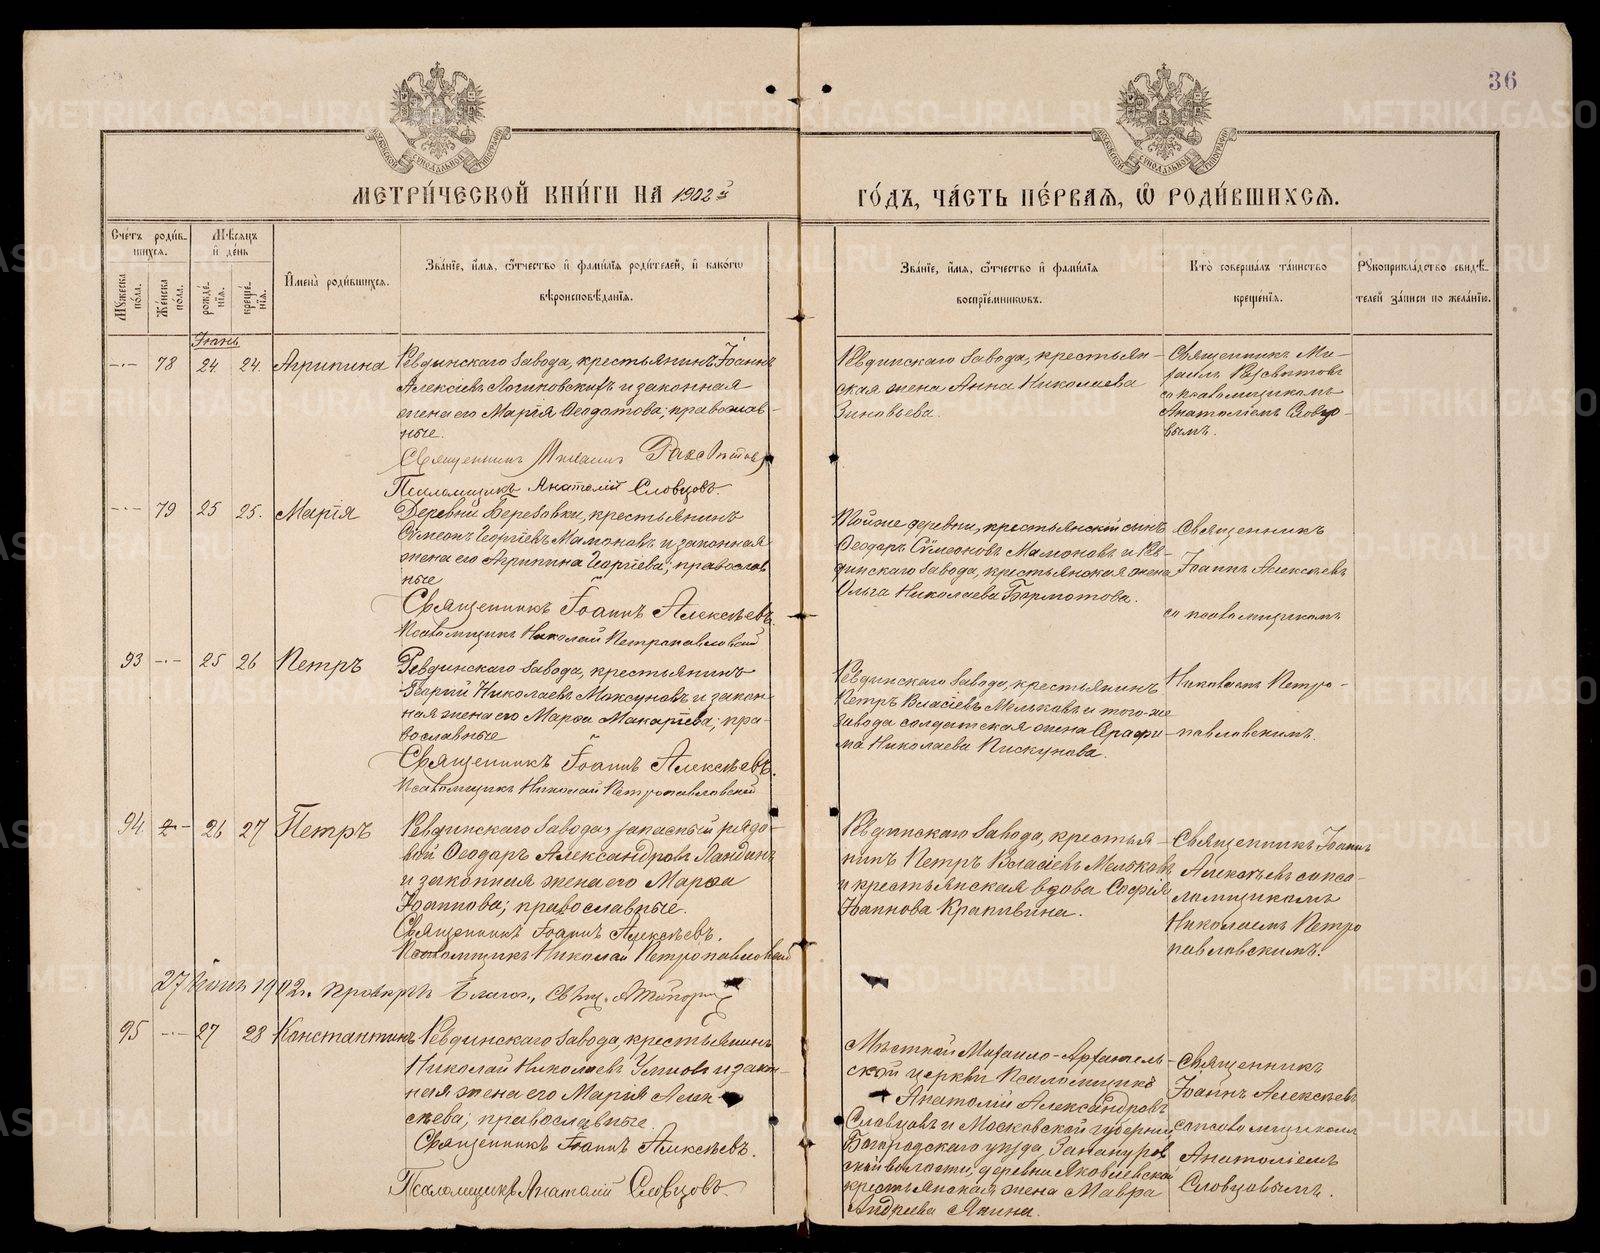 36
МЕТРИ́ЧЕСКОЙ КНИ́ГИ НА 1902 й
ГО́ДЪ, ЧА́СТЬ ПЕ́РВАѦ, Ѽ РОДИ́ВШИХСѦ.
Сче́тъ роди́в-
шихся.
Мѣсяцъ
и́ де́нь
Му́жеска по́ла.
Же́нска по́ла.
рожде́нїя.
креще́нїя.
И҆мена̀ роди́вшихся.
Зва́нїе, и҆́мя, ѻ҆́тчество и҆ фами́лїя роди́телей, и҆ како́гѡ
вѣроисповѣ́данїя.
Зва́нїе, и҆́мя, ѻ҆́тчество и҆ фами́лїя
воспрїе́мникѡвъ.
Кто̀ соверша́лъ та́инство
креще́нїя.
Рукоприкла́дство свидѣ́-
телей за́писи по жела́нїю.
Іюнь
-·- 78 24 24. Агрипина
Ревдинскаго завода, крестьянинъ Іоаннъ
Алексіевъ Логиновскихъ и законная
жена его Марія Ѳеодотова; православ-
ные.
Священникъ Михаилъ
Псаломщикъ Анатолій Словцовъ.
Ревдинскаго завода, крестьян-
ская жена Анна Николаева
Зиновьева.
Священникъ Ми-
хаилъ
со псаломщикомъ
Анатоліемъ Словцо-
вымъ.
-·- 79 25 25. Марія
Деревни Березовки, крестьянинъ
Сѵмеонъ Георгіевъ Мамоновъ и законная
жена его Агрипина Георгіева; православ
ные
Священникъ Іоаннъ Алексѣевъ.
Псаломщикъ Николай Петропавловскій
Той же деревни, крестьянскій сынъ
Ѳеодоръ Сѵмеоновъ Мамоновъ и Рев-
динскаго завода, крестьянская жена
Ольга Николаева Бормотова.
Священникъ
Іоаннъ Алексѣевъ
со псаломщикомъ
93 -·- 25 26 Петръ
Ревдинскаго завода, крестьянинъ
Георгій Николаевъ Моксуновъ и закон-
ная жена его Марѳа Макаріева; пра-
вославные
Священникъ Іоаннъ Алексѣевъ.
Псаломщикъ Николай Петропавловскій
Ревдинскаго завода, крестьянинъ
Петръ Власіевъ Мельковъ и того-же
завода солдатская жена Серафи-
ма Николаева Пискунова.
Николаемъ Петро-
павловскимъ.
94 - 26 27 Петръ
Ревдинскаго завода, запасный рядо-
вой Ѳеодоръ Александровъ Ландинъ
и законная жена его Марѳа
Іоаннова; православные.
Священникъ Іоаннъ Алексѣевъ.
Псаломщикъ Николай Петропавловскій
Ревдинскаго завода, крестья-
нинъ Петръ Власіевъ Мельковъ
и крестьянская вдова Софія
Іоаннова Крапивина.
Священникъ Іоаннъ
Алексѣевъ с псо-
ломщикомъ
Николаемъ Петро
павловскимъ.
27 Іюня 1902 г. провѣрилъ Благоч., Свящ.
95 -·- 27 28 Константинъ
Ревдинскаго завода, крестьянинъ
Николай Николаевъ Умновъ и закон-
ная жена его Марія Алек
сѣева; православные.
Священникъ Іоаннъ Алексѣевъ.
Псаломщикъ Анатолій Словцовъ.
Мѣстной Михаило-Архангель-
ской церкви Псаломщикъ
Анатолій Александровъ
Словцовъ и Московской губерніи
Богородскаго уѣзда, Запонуров
ской волости, деревни Яковлевской
крестьянская жена Мавра
Андреева Янина.
Священникъ
Іоаннъ Алексѣевъ
с псаломщикомъ
Анатоліемъ
Словцовымъ.
METRIKI.GASO-URAL.RU